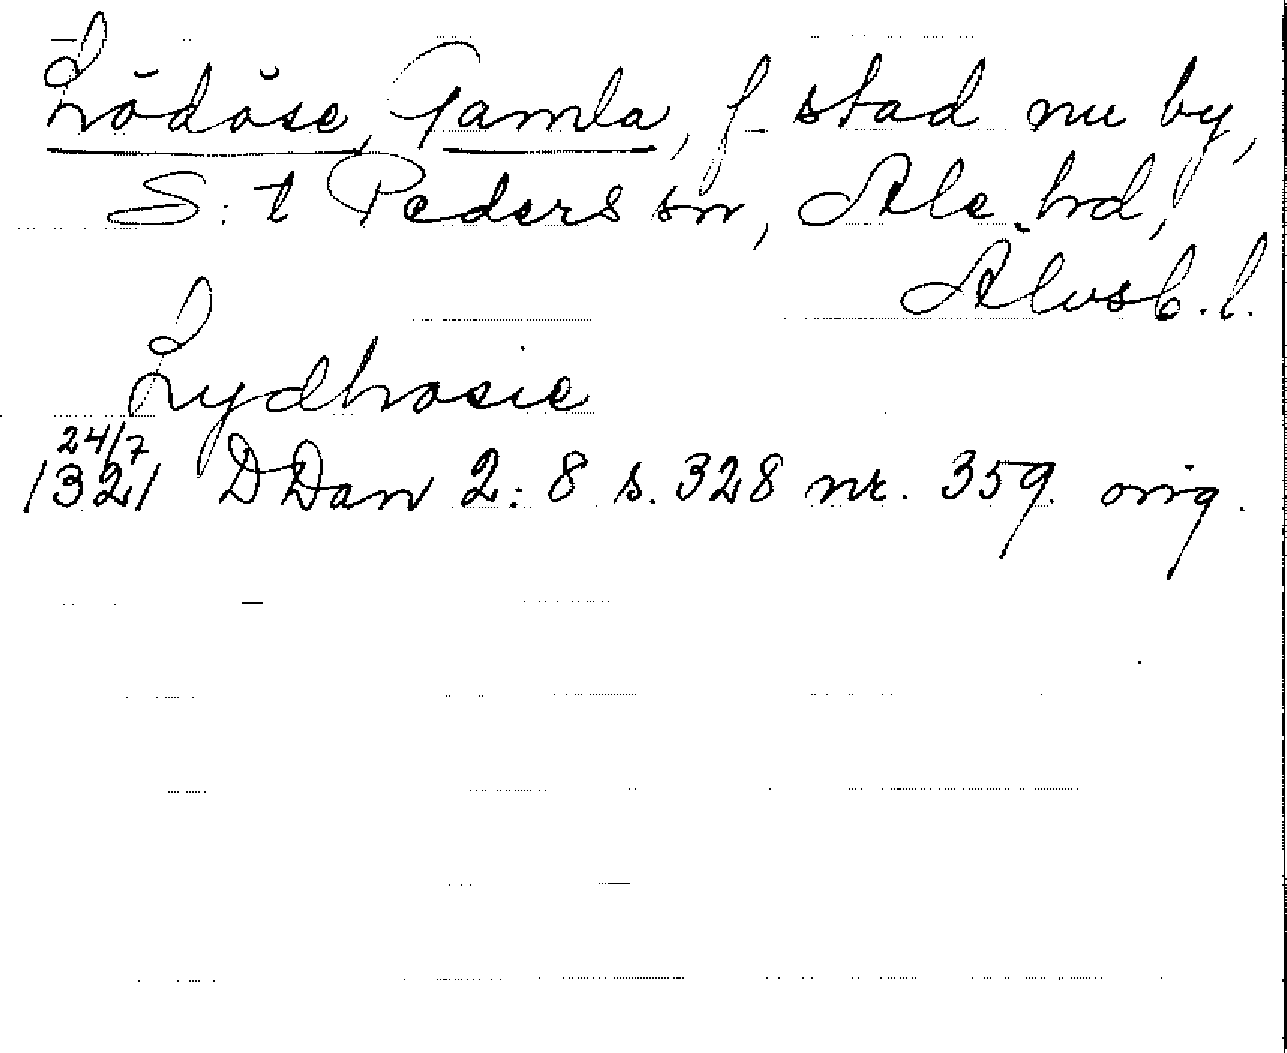 Lödöse, Gamla, f. stad nu by,
S:t Peders sn, Ale hd,
Älvsb. l.
Lydhosie
24/7
1321 DDan 2:8 s. 328 nr. 359. orig.